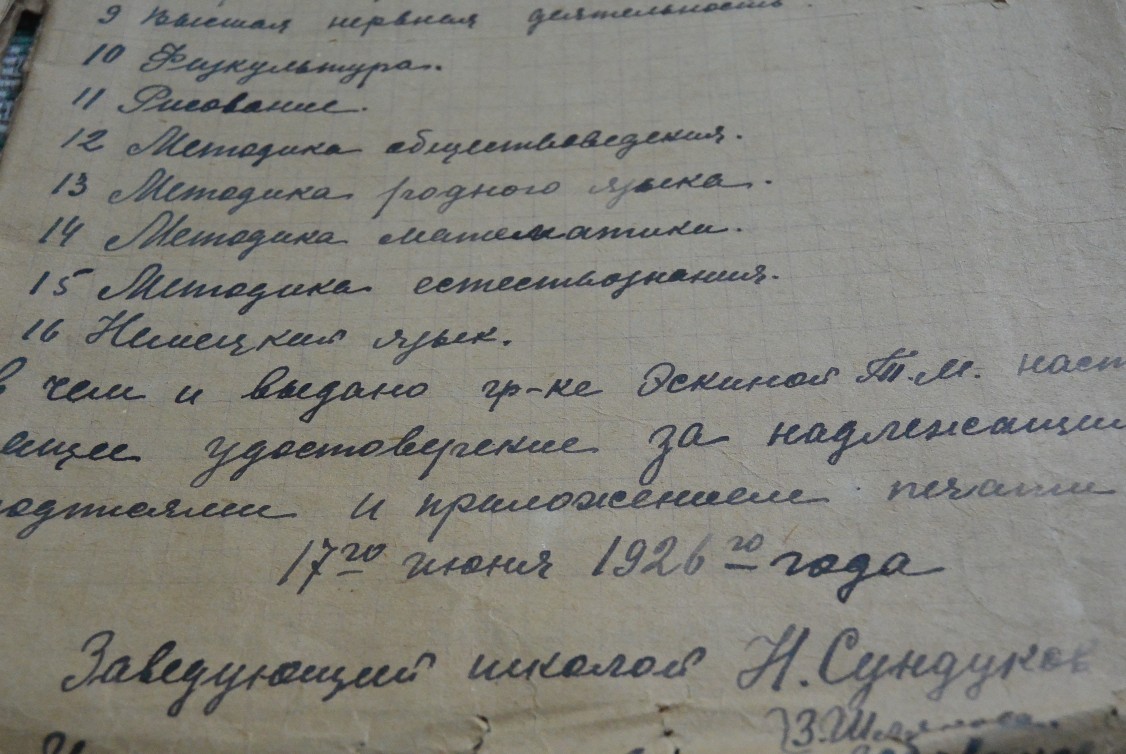 9 Высшая нервная деятельность.
10 Физкультура.
11 Рисование.
12 Методика обществоведения.
13 Методика родного языка.
14 Методика математики.
15 Методика естествознания.
16 Немецкий язык.
в чем и выдано гр-ке Эскиной Т.М. наст
ящее удостоверение за надлежащим
подписями и приложением печати
17го июня 1926го года
Заведующий школой Н. Сундуков